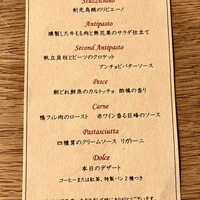 Stuzzichino
剣先烏賊のリピエーノ
Antipasto
燻製した牛もも肉と無花果のサラダ仕立て
Second Antipasto
帆立貝柱とビーツのクロケット
アンチョビバターソース
Pesce
朝どれ鮮魚のカルトッチョ 酢橘の香り
Carne
鴨フィレ肉のロースト 赤ワイン香る巨峰のソース
Pastasciutta
四種茸のクリームソース リガトーニ
Dolce
本日のデザート
コーヒーまたは紅茶、特製パン2種つき